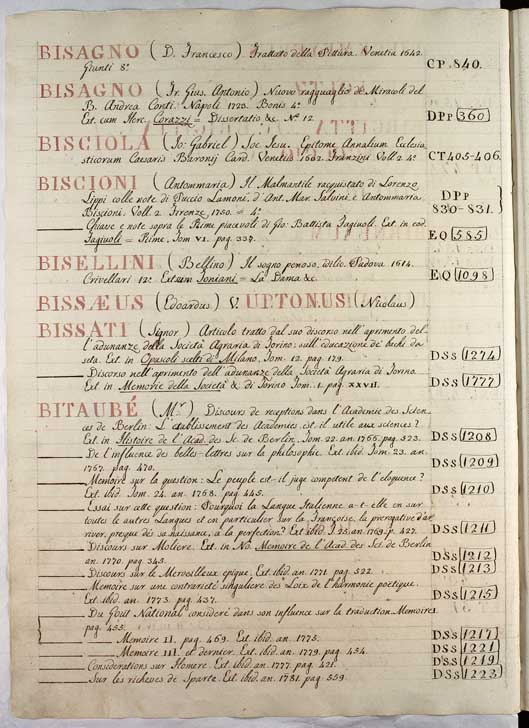 BISAGNO (D. Francesco) Trattato della Pittura. Venetia 1642.
Giunti 8º CP. 840.
BISAGNO (Fr. Gius. Antonio) Nuovo ragguaglio de Miracoli del
B. Andrea Conti. Napoli 1725. Bonis 4º
Ext. cum Hor. Corazzi = Dissertatio &c. Nº 12. DPp 360
BISCIOLA (Jo: Gabriel) Soc. Jesu. Epitome Annalium Ecclesia
sticorum Caesaris Baronij Card. Venetiis 1602. Franzini Voll. 2 4º CT 405-406.
BISCIONI (Antommaria) Il Malmantile racquistato di Lorenzo
Lippi colle note di Puccio Lamoni, d'Ant. Mar. Salvini, e Antommaria
Biscioni. Voll. 2. Firenze, 1750. = 4º DPp 830-831.
Chiave e note sopra le Rime piacevoli di Gio: Battista Fagiuoli. Ext. in eod.
Fagiuoli = Rime. Tom VI. pag. 337. EQ 585
BISELLINI (Bellino) Il sogno penoso, idilio. Padova 1614.
Crivellari 12º Ext. in Toniani = La Dama &c. EQ 1098
BISSÆUS (Edoardus) V. UPTONUS (Nicolaus)
BISSATI (Signor) Articolo tratto dal suo discorso nell'aprimento del-
l'adunanze della Società Agraria di Torino: sull'educazione de' bachi da
seta. Ext. in Opuscoli scelti di Milano. Tom. 12. pag. 179. DSs 1274
Discorso nell'aprimento dell'adunanze della Società Agraria di Torino.
Ext. in Memorie della Società &c. di Torino Tom. 1. pag. XXVII. DSs 1777
BITAUBÉ (Mr) Discours de receptions dans l'Academie des Scien
ces de Berlin: L'etablissement des Academies est-il utile aux sciences?
Ext. in Histoire de l'Acad. des Sc. de Berlin. Tom. 22. an. 1766. pag. 523. DSs 1208
De l'influence des belles-lettres sur la philosophie. Ext. ibid. Tom. 23. an.
1767. pag. 470. DSs 1209
Memoire sur la question: Le peuple est-il juge competent de l'eloquence?
Ext. ibid. Tom. 24. an. 1768. pag. 445. DSs 1210
Essai sur cette question: Pourquoi la Langue Italienne a-t-elle eu sur
toutes le autres Langues et en particulier sur la Françoise, la prerogative d'ar
river, preque dès sa naissance, à la perfection? Ext. ibid. T. 25. an. 1769. p. 427. DSs 1211
Discours sur Moliere. Ext. in No. Memoire de l'Acad. des Sci. de Berlin
an. 1770. pag. 345. DSs 1212
Discours sur le Merveilleux epique. Ext. ibid. an. 1771. pag. 522. DSs 1213
Memoire sur une contrarieté singuliere des Loix de l'harmonie poetique.
Ext. ibid. an. 1773. pag. 437. DSs 1215
Du Goût National consideré dans son influence sur la traduction. Memoire I
pag. 455.
Memoire II. pag. 469. Ext. ibid. an. 1775. DSs 1217
Memoire III. et dernier. Ext. ibid. an. 1779. pag. 454. DSs 1221
Considerations sur Homere. Ext. ibid. an. 1777. pag. 421. DSs 1219
Sur les richeses de Sparte. Ext. ibid. an. 1781. pag. 559. DSs 1223